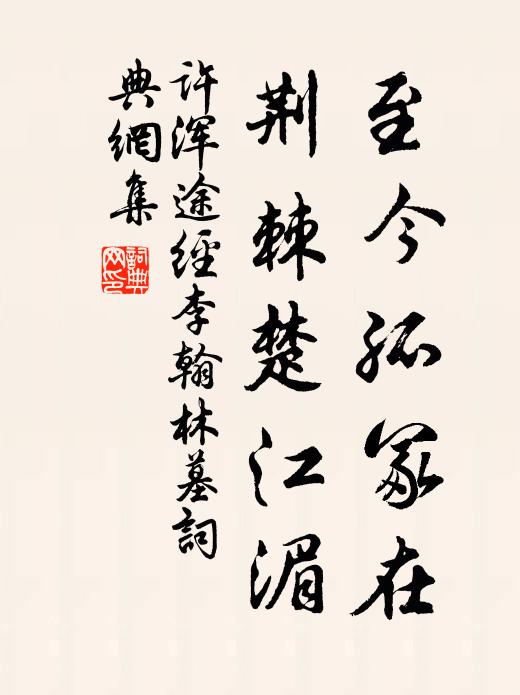 至今孤冢在
荆棘楚江湄
许浑途經李翰林墓詞
典網集
詞典网印